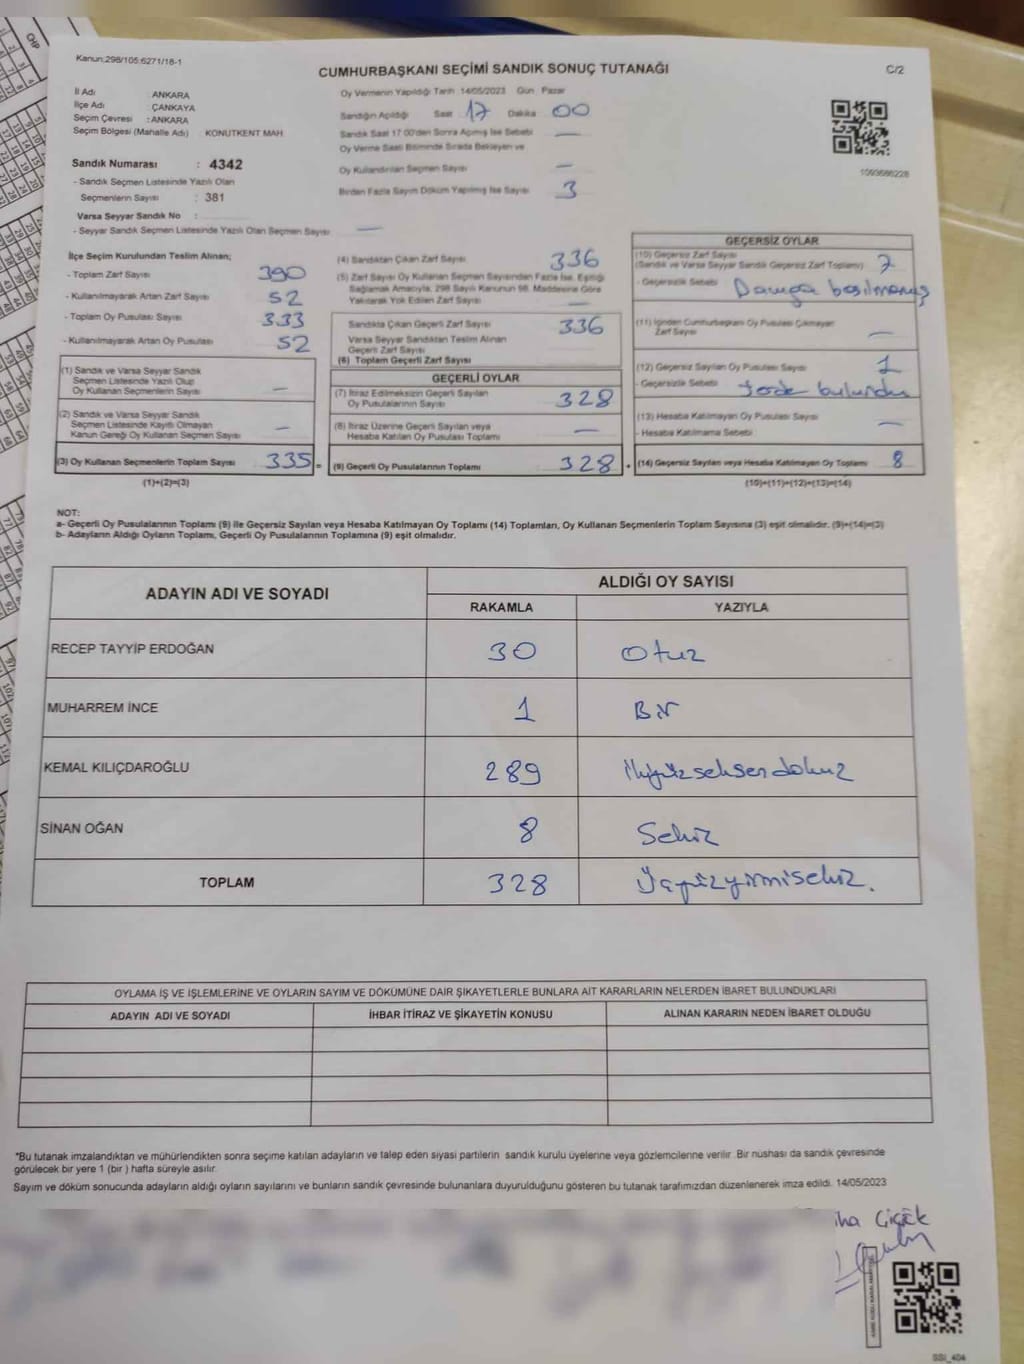 CHP
Kanun;298/105;6271/18-1
CUMHURBAŞKANI SEÇİMİ SANDIK SONUÇ TUTANAĞI
C/2
İl Adı : ANKARA
İlçe Adı : ÇANKAYA
Seçim Çevresi : ANKARA
Seçim Bölgesi (Mahalle Adı) : KONUTKENT MAH
Oy Vermenin Yapıldığı Tarih :14/05/2023 Gün Pazar
Sandığın Açıldığı Saat 17 Dakika 00
Sandık Saat 17:00'den Sonra Açılmış İse Sebebi —
Oy Verme Saati Bitiminde Sırada Bekleyen ve
Oy Kullandırılan Seçmen Sayısı —
Birden Fazla Sayım Döküm Yapılmış İse Sayısı 3
1093686228
Sandık Numarası : 4342
- Sandık Seçmen Listesinde Yazılı Olan
Seçmenlerin Sayısı : 381
Varsa Seyyar Sandık No :
- Seyyar Sandık Seçmen Listesinde Yazılı Olan Seçmen Sayısı —
İlçe Seçim Kurulundan Teslim Alınan;
- Toplam Zarf Sayısı 390
- Kullanılmayarak Artan Zarf Sayısı 52
- Toplam Oy Pusulası Sayısı 333
- Kullanılmayarak Artan Oy Pusulası 52
(1) Sandık ve Varsa Seyyar Sandık
Seçmen Listesinde Yazılı Olup
Oy Kullanan Seçmenlerin Sayısı —
(2) Sandık ve Varsa Seyyar Sandık
Seçmen Listesinde Kayıtlı Olmayan
Kanun Gereği Oy Kullanan Seçmen Sayısı —
(3) Oy Kullanan Seçmenlerin Toplam Sayısı 335 =
(1)+(2)=(3)
(4) Sandıktan Çıkan Zarf Sayısı 336
(5) Zarf Sayısı Oy Kullanan Seçmen Sayısından Fazla İse, Eşitliği
Sağlamak Amacıyla, 298 Sayılı Kanunun 98. Maddesine Göre
Yakılarak Yok Edilen Zarf Sayısı —
Sandıkta Çıkan Geçerli Zarf Sayısı 336
Varsa Seyyar Sandıktan Teslim Alınan
Geçerli Zarf Sayısı
(6) Toplam Geçerli Zarf Sayısı
GEÇERLİ OYLAR
(7) İtiraz Edilmeksizin Geçerli Sayılan
Oy Pusulalarının Sayısı 328
(8) İtiraz Üzerine Geçerli Sayılan veya
Hesaba Katılan Oy Pusulası Toplamı —
(9) Geçerli Oy Pusulalarının Toplamı 328 +
GEÇERSİZ OYLAR
(10) Geçersiz Zarf Sayısı
(Sandık ve Varsa Seyyar Sandık Geçersiz Zarf Toplamı) 7
- Geçersizlik Sebebi Damga basılmamış
(11) İçinden Cumhurbaşkanı Oy Pusulası Çıkmayan
Zarf Sayısı —
(12) Geçersiz Sayılan Oy Pusulası Sayısı 1
- Geçersizlik Sebebi bulundu
(13) Hesaba Katılmayan Oy Pusulası Sayısı —
- Hesaba Katılmama Sebebi
(14) Geçersiz Sayılan veya Hesaba Katılmayan Oy Toplamı 8
(10)+(11)+(12)+(13)=(14)
NOT:
a- Geçerli Oy Pusulalarının Toplamı (9) ile Geçersiz Sayılan veya Hesaba Katılmayan Oy Toplamı (14) Toplamları, Oy Kullanan Seçmenlerin Toplam Sayısına (3) eşit olmalıdır. (9)+(14)=(3)
b- Adayların Aldığı Oyların Toplamı, Geçerli Oy Pusulalarının Toplamına (9) eşit olmalıdır.
ADAYIN ADI VE SOYADI
ALDIĞI OY SAYISI
RAKAMLA YAZIYLA
RECEP TAYYİP ERDOĞAN 30 Otuz
MUHARREM İNCE 1 Bir
KEMAL KILIÇDAROĞLU 289 İkiyüzseksendokuz
SİNAN OĞAN 8 Sekiz
TOPLAM 328 Üçyüzyirmisekiz.
OYLAMA İŞ VE İŞLEMLERİNE VE OYLARIN SAYIM VE DÖKÜMÜNE DAİR ŞİKAYETLERLE BUNLARA AİT KARARLARIN NELERDEN İBARET BULUNDUKLARI
ADAYIN ADI VE SOYADI İHBAR İTİRAZ VE ŞİKAYETİN KONUSU ALINAN KARARIN NEDEN İBARET OLDUĞU
*Bu tutanak imzalandıktan ve mühürlendikten sonra seçime katılan adayların ve talep eden siyasi partilerin sandık kurulu üyelerine veya gözlemcilerine verilir. Bir nüshası da sandık çevresinde
görülecek bir yere 1 (bir) hafta süreyle asılır.
Sayım ve döküm sonucunda adayların aldığı oyların sayılarını ve bunların sandık çevresinde bulunanlara duyurulduğunu gösteren bu tutanak tarafımızdan düzenlenerek imza edildi. 14/05/2023
iha Çiçek
SSI_404